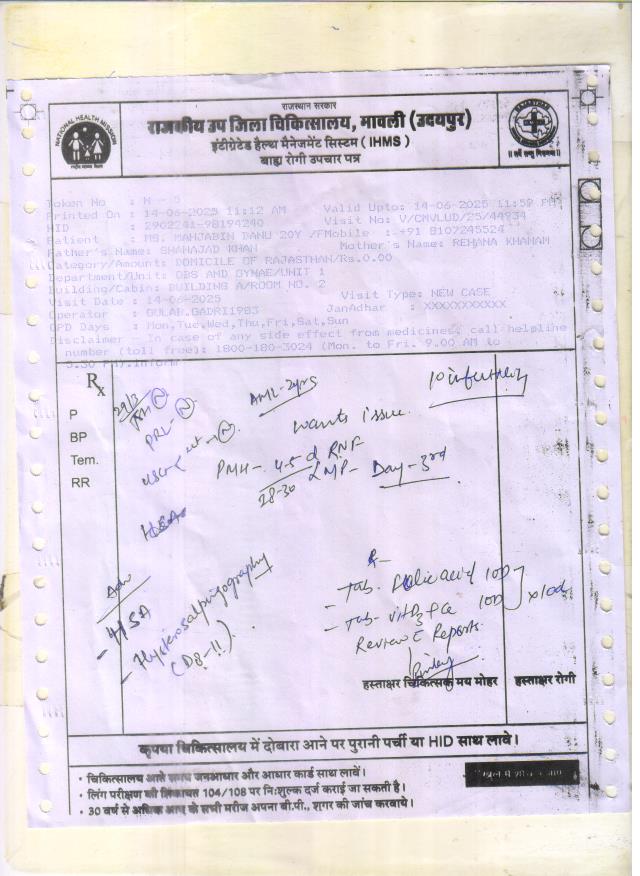 राजस्थान सरकार
राजकीय उप जिला चिकित्सालय, मावली (उदयपुर)
इंटीग्रेटेड हेल्थ मैनेजमेंट सिस्टम ( IHMS )
बाह्य रोगी उपचार पत्र
NATIONAL HEALTH MISSION
Token No : N - 5
Printed On : 14-06-2025 11:12 AM Valid Upto: 14-06-2025 11:59 PM
HID : 2902241-98194240 Visit No: V/CMVLUD/25/44934
Patient : MS. MAHJABIN BANU 20Y /F Mobile : +91 8107245524
Father's Name: SHAHAJAD KHAN Mother's Name: REHANA KHANAM
Category/Amount: DOMICILE OF RAJASTHAN/Rs.0.00
Department/Unit: OBS AND GYNAE/UNIT 1
Building/Cabin: BUILDING A/ROOM NO. 2
Visit Date : 14-06-2025 Visit Type: NEW CASE
Operator : GULAB.GADRI1983 JanAdhar : XXXXXXXXXXX
OPD Days : Mon,Tue,Wed,Thu,Fri,Sat,Sun
Disclaimer - In case of any side effect from medicines, call helpline
number (toll free): 1800-180-3024 (Mon. to Fri. 9.00 AM to
5.30 PM).Inform
Rx
P
BP
Tem.
RR
29/3
PRL - N
AML - 2yrs
10 infertility
wants issue
PMH - 4-5 d RNF
28-30
LMP - Day - 3rd
Adv
- HSA
- Hysterosalpingography
(D8-11)
R-
- Tab. Folic acid 1OD
- Tab. vit D3 + Ca 1OD
x 10d
Review c Reports
हस्ताक्षर चिकित्सक मय मोहर
हस्ताक्षर रोगी
कृपया चिकित्सालय में दोबारा आने पर पुरानी पर्ची या HID साथ लावे।
• चिकित्सालय आते समय जनआधार और आधार कार्ड साथ लावें।
• लिंग परीक्षण की शिकायत 104/108 पर नि:शुल्क दर्ज कराई जा सकती है।
• 30 वर्ष से अधिक आयु के सभी मरीज अपना बी.पी., शुगर की जांच करवाये।